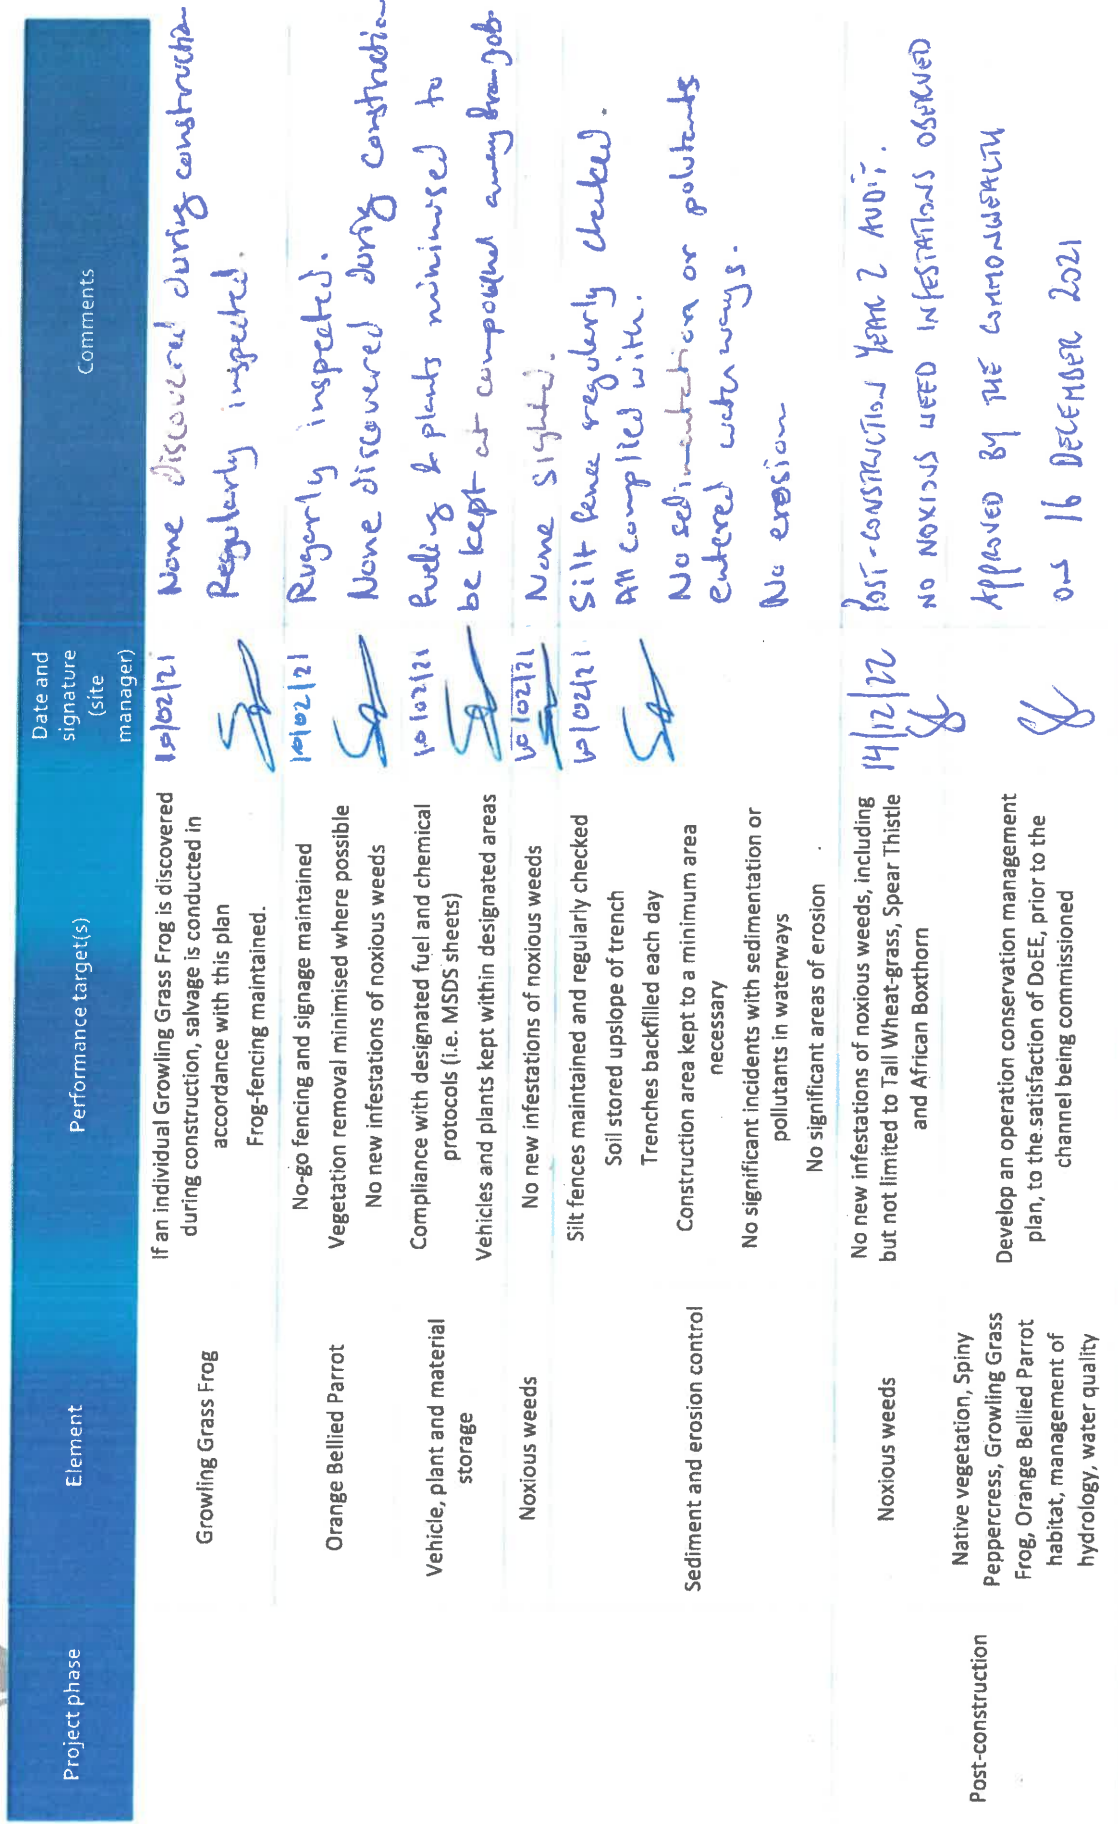 Project phase
Element
Performance target(s)
Date and
signature
(site
manager)
Comments
Growling Grass Frog
If an individual Growling Grass Frog is discovered
during construction, salvage is conducted in
accordance with this plan
Frog-fencing maintained.
10/02/21
None discovered during construction
Regularly inspected.
Orange Bellied Parrot
No-go fencing and signage maintained
Vegetation removal minimised where possible
No new infestations of noxious weeds
10/02/21
Rugarly inspected.
None discovered during construction
Vehicle, plant and material
storage
Compliance with designated fuel and chemical
protocols (i.e. MSDS sheets)
Vehicles and plants kept within designated areas
10/02/21
Fueling & plants minimised to
be kept at compound away from job.
Noxious weeds
No new infestations of noxious weeds
10/02/21
None sighted.
Sediment and erosion control
Silt fences maintained and regularly checked
Soil stored upslope of trench
Trenches backfilled each day
Construction area kept to a minimum area
necessary
No significant incidents with sedimentation or
pollutants in waterways
No significant areas of erosion
10/02/21
Silt fence regularly checked.
All complied with.
No sedimentation or polutants
entered water ways.
No erosion
Post-construction
Noxious weeds
No new infestations of noxious weeds, including
but not limited to Tall Wheat-grass, Spear Thistle
and African Boxthorn
14/12/22
POST-CONSTRUCTION YEAR 2 AUDIT.
NO NOXIOUS WEED INFESTATIONS OBSERVED
Native vegetation, Spiny
Peppercress, Growling Grass
Frog, Orange Bellied Parrot
habitat, management of
hydrology, water quality
Develop an operation conservation management
plan, to the satisfaction of DoEE, prior to the
channel being commissioned
APPROVED BY THE COMMONWEALTH
ON 16 DECEMBER 2021